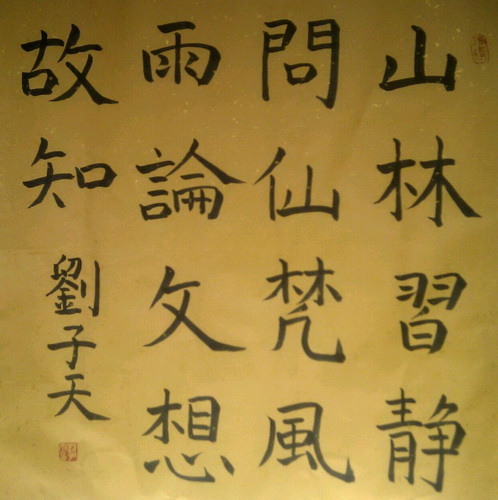 山林習静
問仙梵風
雨論文想
故知
劉子天